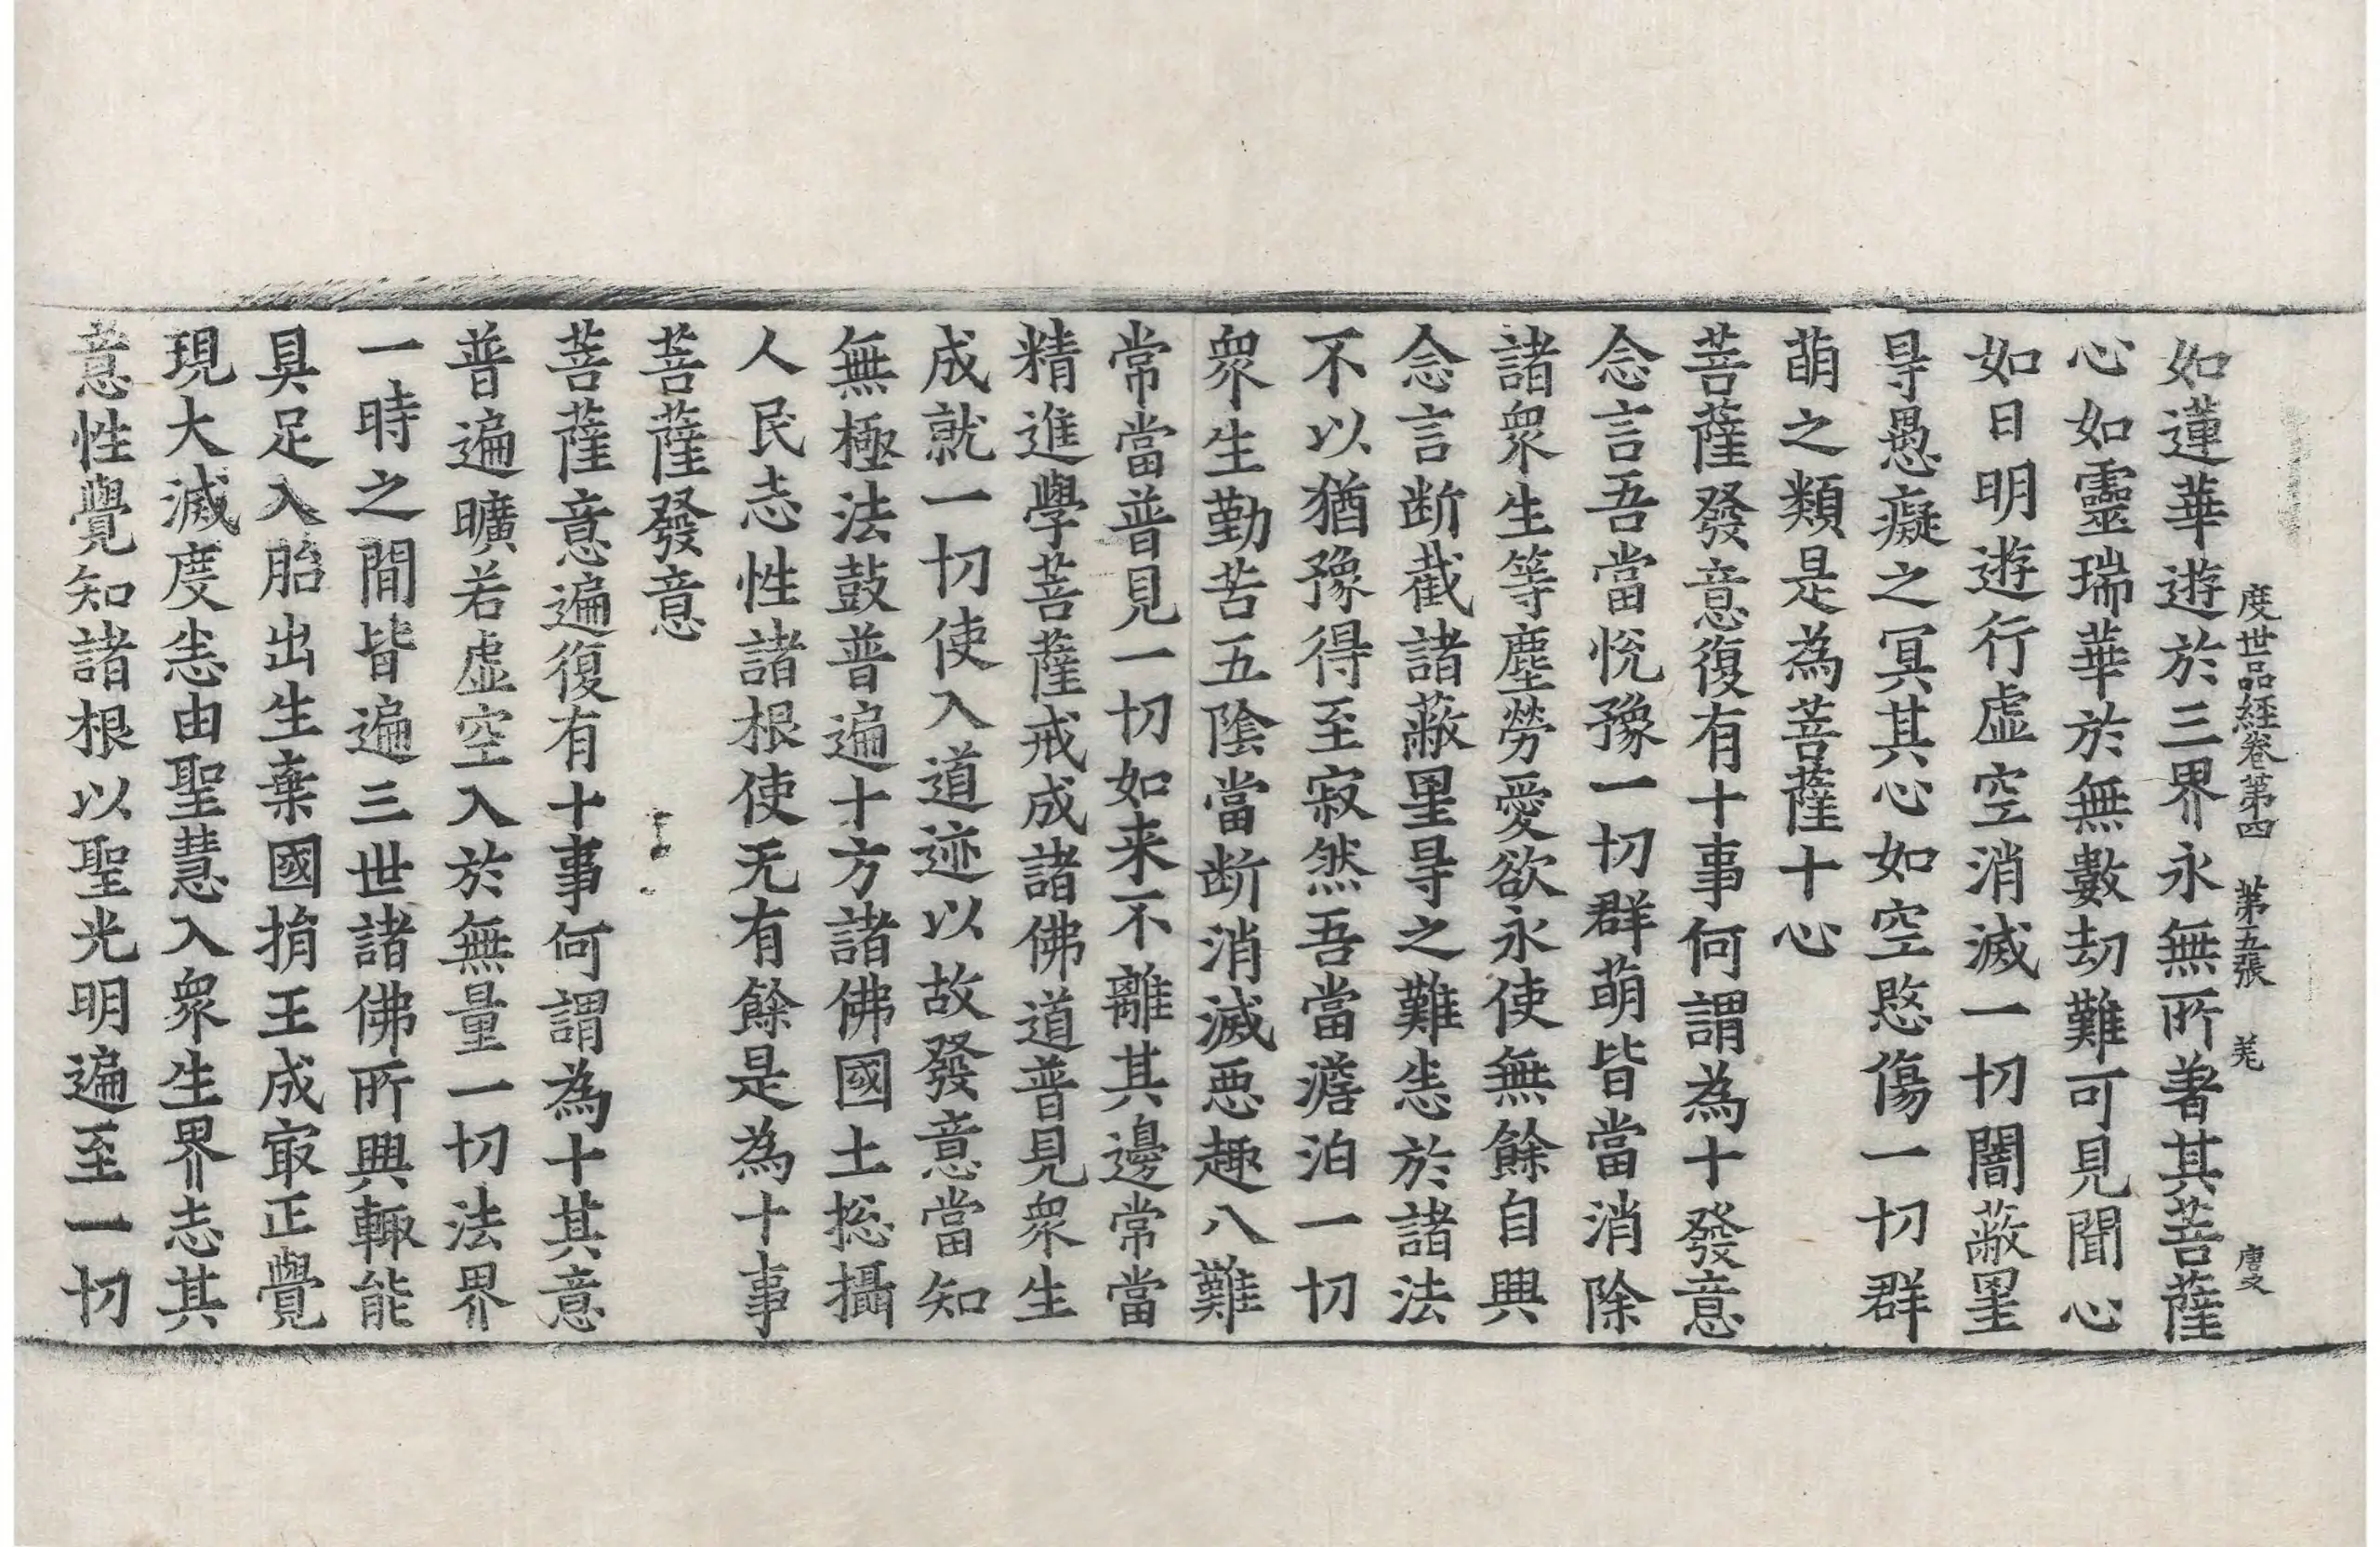 度世品経卷第四 第五張 羌 唐文
如蓮華遊於三界永無所著其菩薩
心如靈瑞華於無數劫難可見聞心
如日明遊行虛空消滅一切闇蔽罣
㝵愚癡之冥其心如空愍傷一切群
萌之類是為菩薩十心
菩薩發意復有十事何謂為十發意
念言吾當恱豫一切群萌皆當消除
諸衆生等塵勞愛欲永使無餘自興
念言断截諸蔽罣㝵之難恙於諸法
不以猶豫得至寂然吾當澹泊一切
衆生勤苦五陰當断消滅惡趣八難
常當普見一切如来不離其邊常當
精進學菩薩戒成諸佛道普見衆生
成就一切使入道迹以故發意當知
無極法鼓普遍十方諸佛國土捴攝
人民志性諸根使无有餘是為十事
菩薩發意
菩薩意遍復有十事何謂為十其意
普遍曠若虛空入於無量一切法界
一時之間皆遍三世諸佛所興輙能
具足入胎出生棄國捐王成㝡正覺
現大滅度恙由聖慧入衆生界志其
意性覺知諸根以聖光明遍至一切